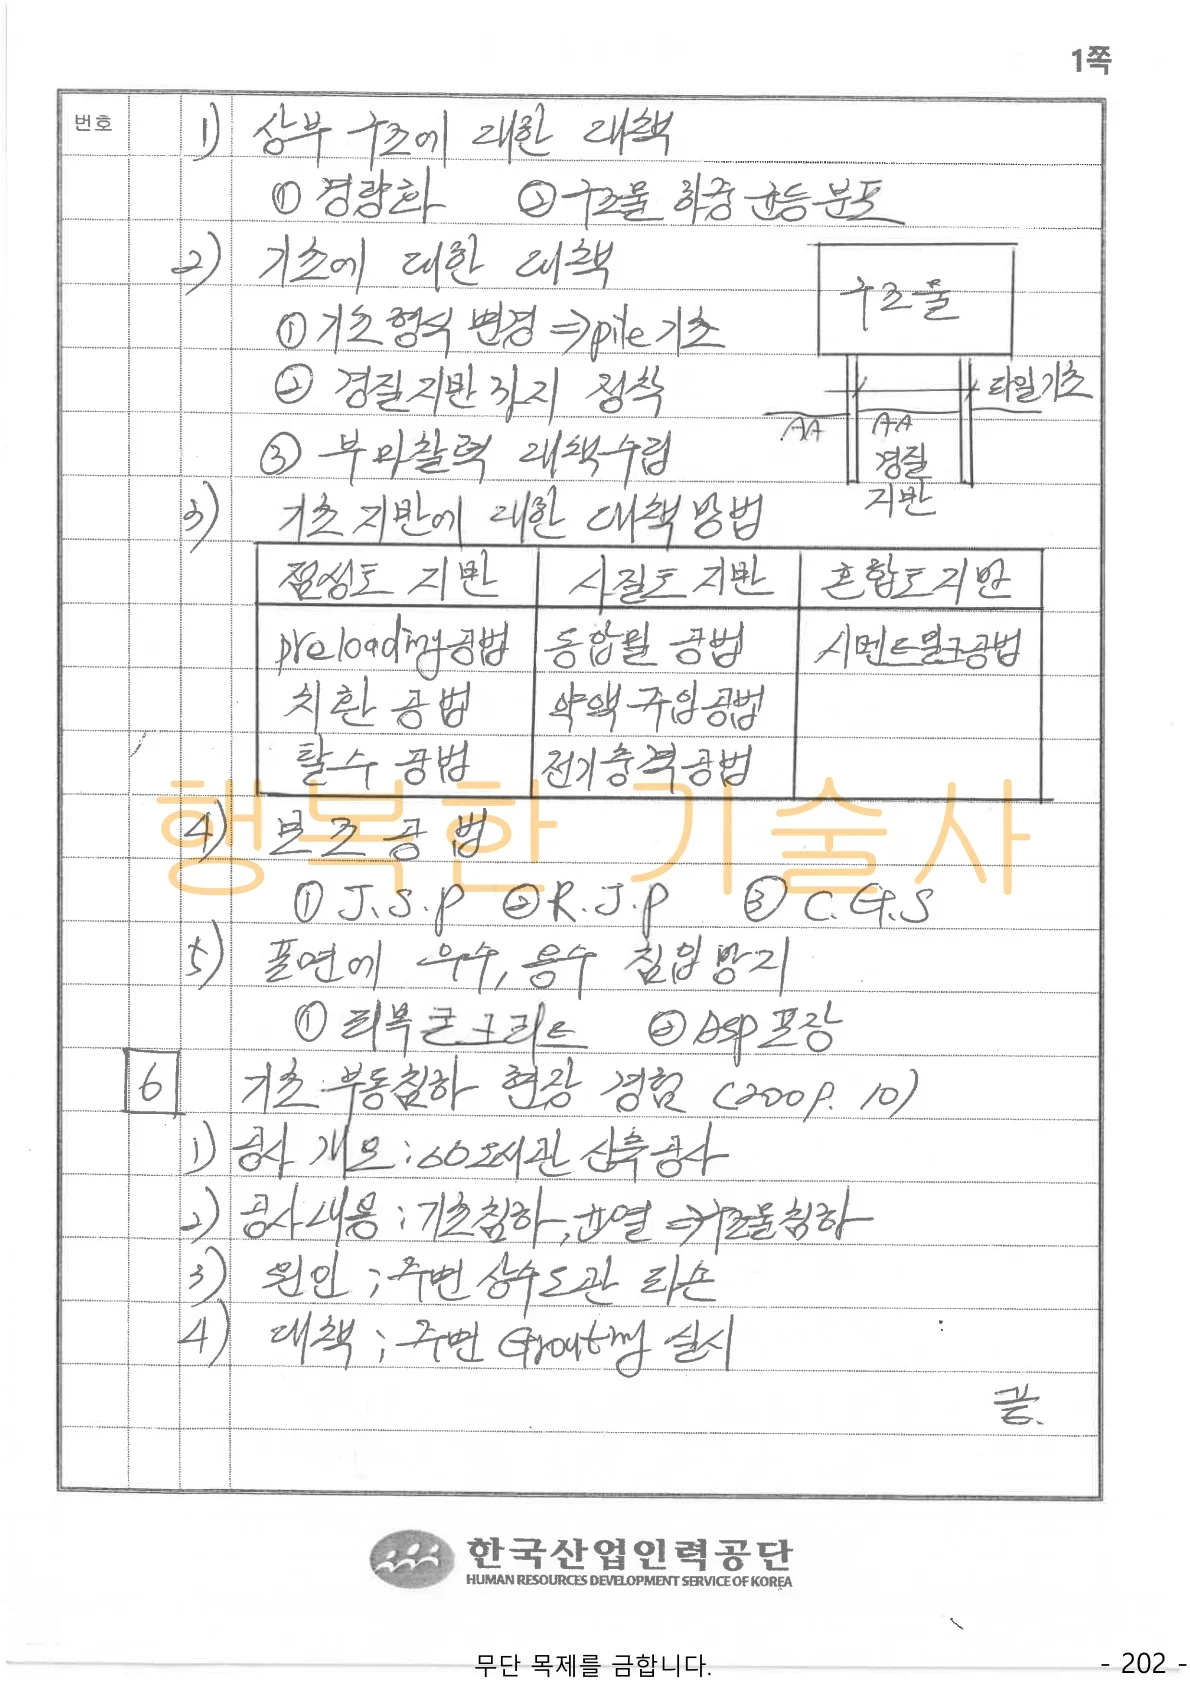 1쪽
번호
1) 상부 구조에 대한 대책
① 경량화 ② 구조물 하중 균등분포
2) 기초에 대한 대책
① 기초형식 변경 ⇒ pile기초
② 경질지반까지 정착
③ 부마찰력 대책수립
구조물
파일기초
경질
지반
3) 기초지반에 대한 대책방법
점성토 지반 사질토 지반 혼합토지반
preloading공법 동압밀 공법 시멘트밀크공법
치환 공법 약액주입공법
탈수 공법 전기충격공법
행복한 기술사
4) 보조공법
① J.S.P ② R.J.P ③ C.G.S
5) 표면에 우수, 용수 침입방지
① 피복콘크리트 ② Asp포장
6 기초 부동침하 현장 경험 (2009. 10)
1) 공사 개요 : 00오시관 신축공사
2) 공사내용 ; 기초침하, 균열 ⇒ 구조물침하
3) 원인 ; 주변 상수도관 파손
4) 대책 ; 주변 Grouting 실시
끝.
한국산업인력공단
HUMAN RESOURCES DEVELOPMENT SERVICE OF KOREA
무단 목제를 금합니다.
- 202 -